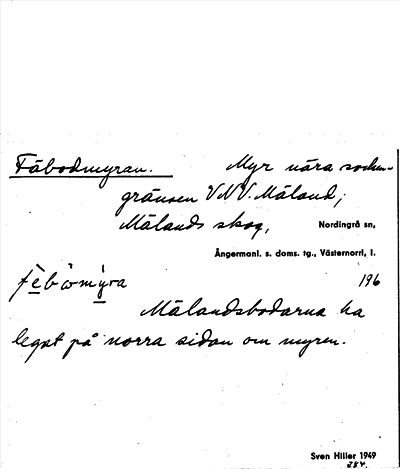 Fäbodmyran. Myr nära socken-
gränsen VNV. Måland;
Målands skog, Nordingrå sn,
Ångermanl. s. doms. tg., Västernorrl. l.
fèbòmýra 196
Målandsbodarna ha
legat på norra sidan om myren.
Sven Hiller 1949
284.